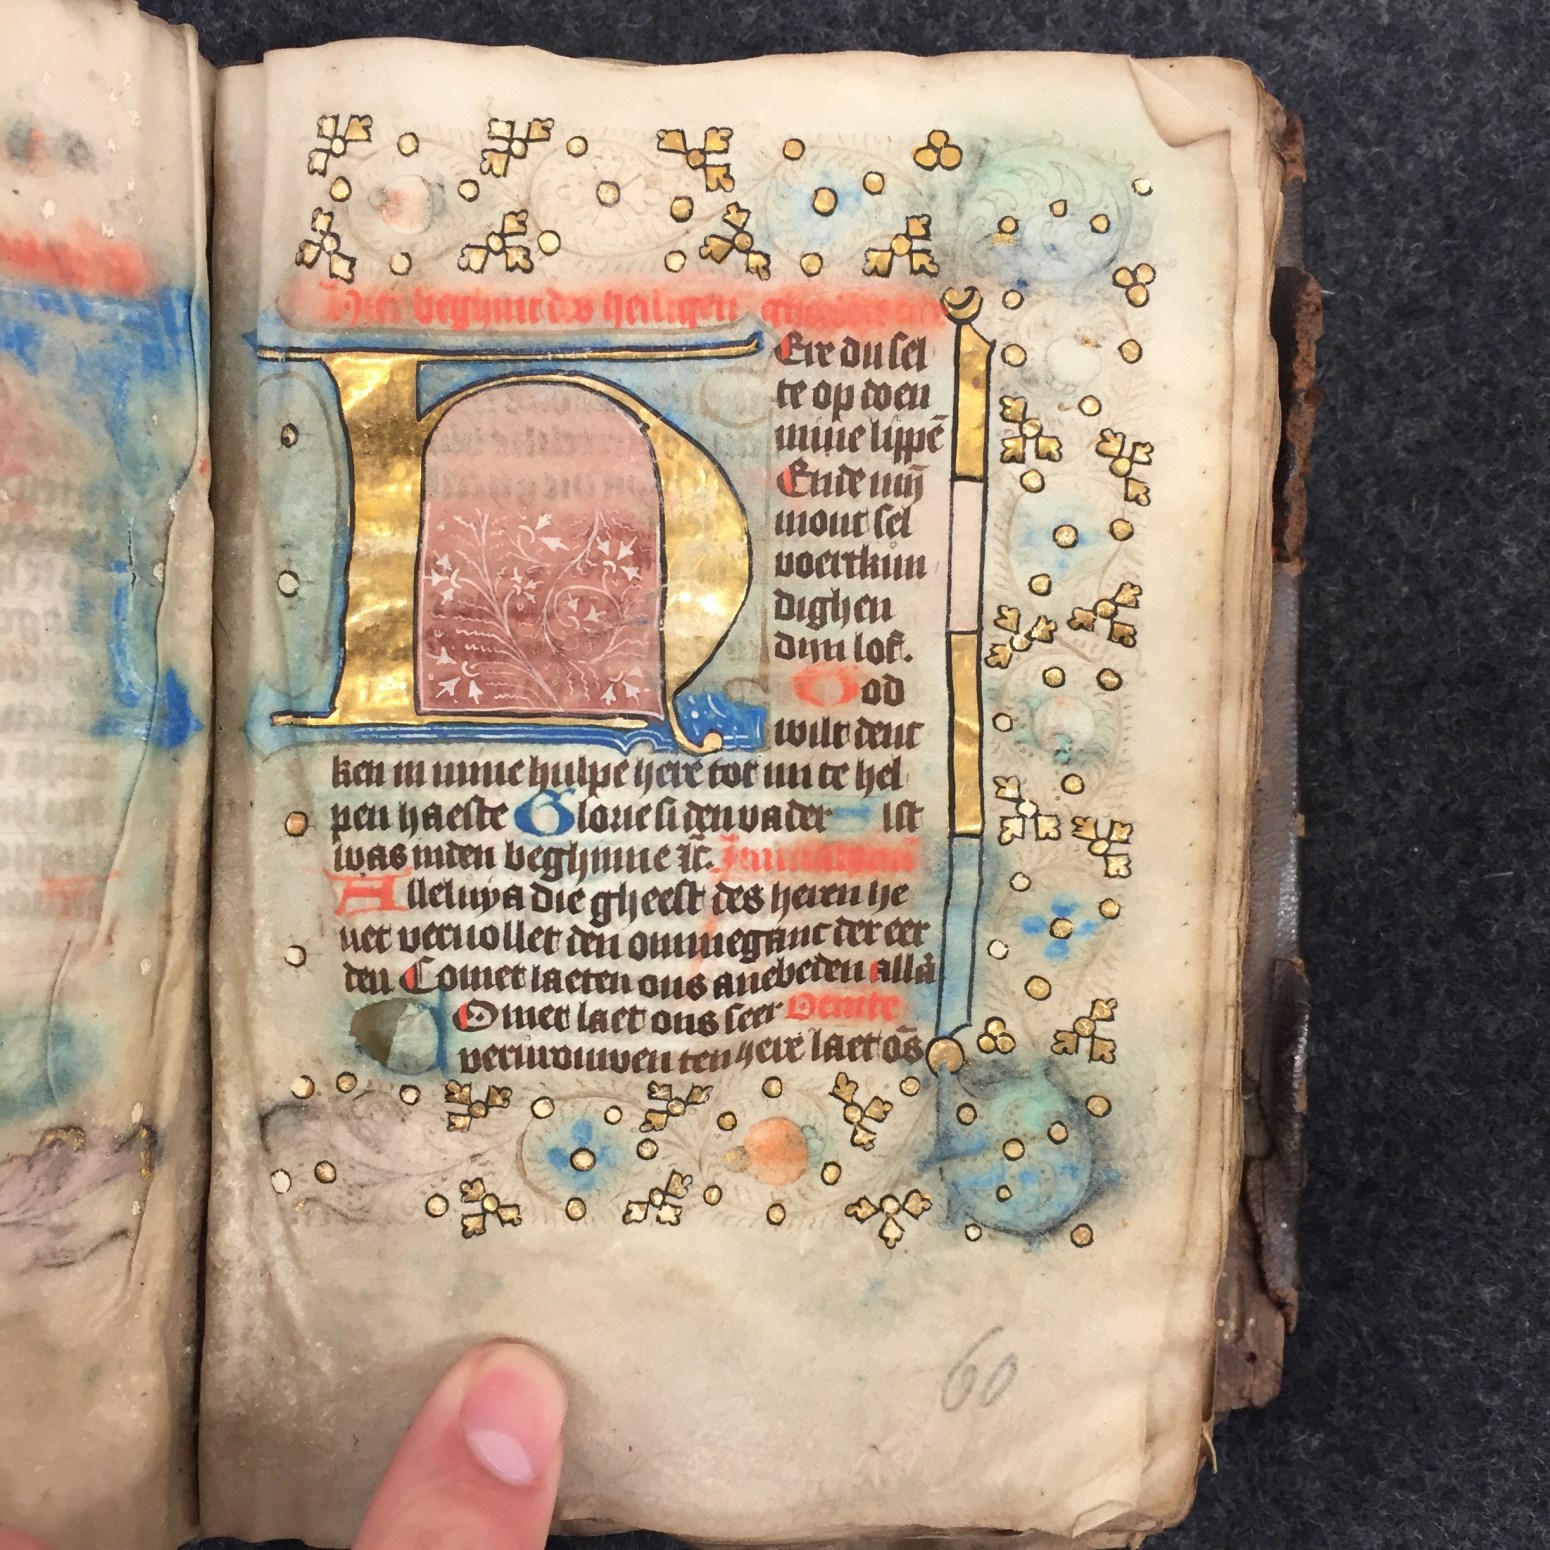 Hier beghint des heiligen
H Ere du sel
te op doen
mine lippē
Ende mijn
mont sel
voertkun
dighen
dijn lof.
God
wilt denc
ken in mine hulpe here tot mi te hel
pen haeste Glorie si den vader Alst
was inden beghinne ꝛc̄.
Alleluya die gheest des heren he
uet veruollet den ommeganc der eer
den Comet laeten ons anebeden allā
Omet laet ons seer Venite
vervrouwen ten here laet ōs
60